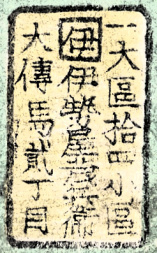 一大區拾四小區
伊 伊勢屋
大傳馬貳丁目